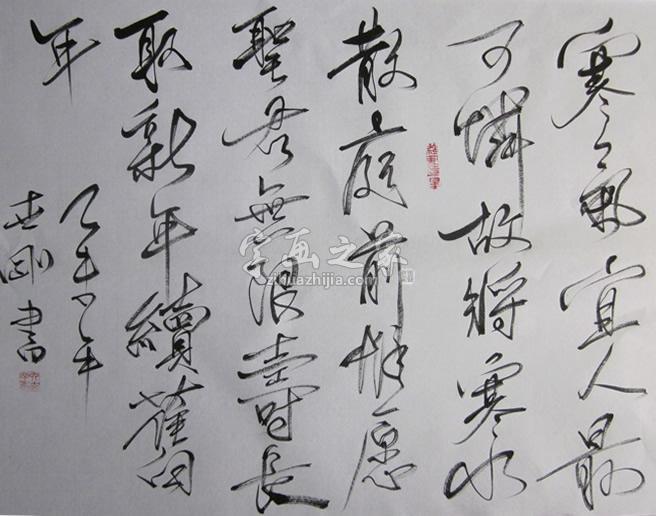 寒氣宜人最
可憐故將寒水
散庭前惟愿
聖君無限壽長
取新年續舊
年
世剛書
字画之家
zihuazhijia.com